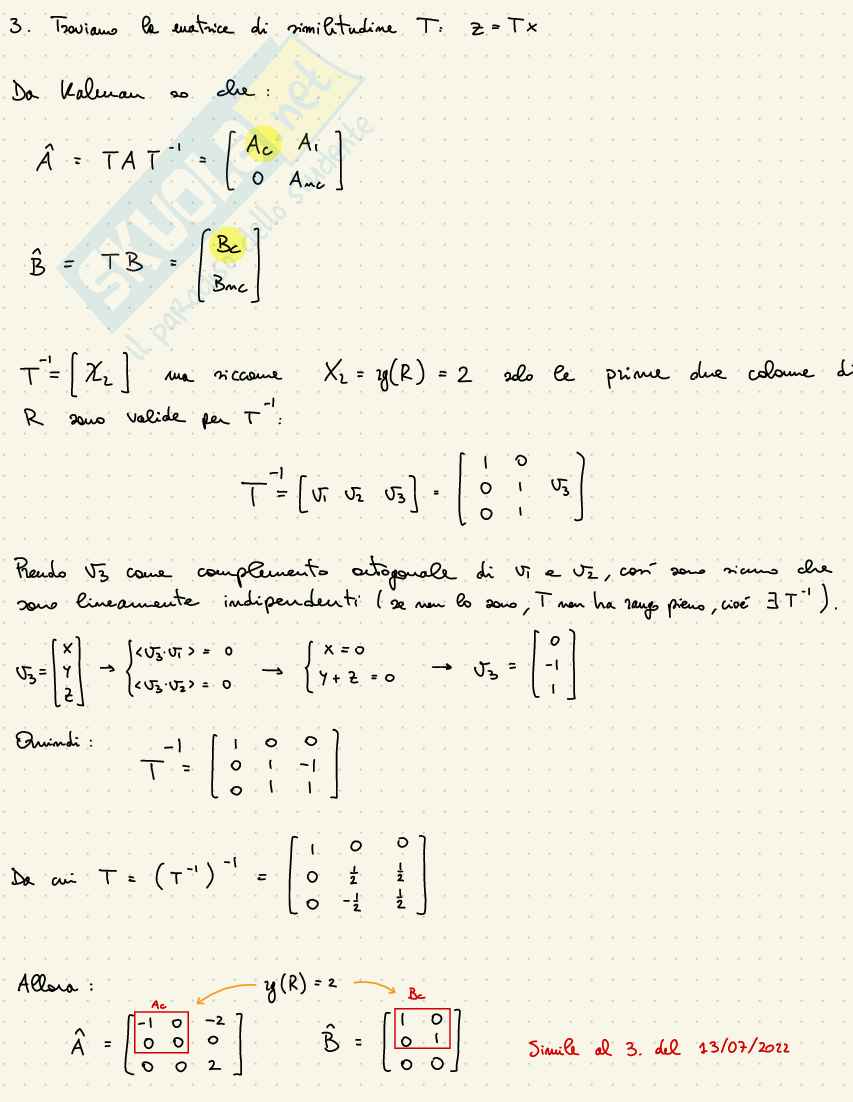 3. Troviamo la matrice di similitudine T: z = Tx
Da Kalman so che:
Â = TAT⁻¹ = [ Ac A1 ; 0 Anc ]
B̂ = TB = [ Bc ; Bnc ]
T⁻¹ = [ X₂ ] ma siccome X₂ = rg(R) = 2 solo le prime due colonne di
R sono valide per T⁻¹:
T⁻¹ = [ v₁ v₂ v₃ ] = [ 1 0 ; 0 1 v₃ ; 0 1 ]
Prendo v₃ come complemento ortogonale di v₁ e v₂, così sono sicuro che
sono linearmente indipendenti (se non lo sono, T non ha rango pieno, cioè ∃ T⁻¹).
v₃ = [ x ; y ; z ] → { <v₃·v₁> = 0 ; <v₃·v₂> = 0 → { x = 0 ; y + z = 0 → v₃ = [ 0 ; -1 ; 1 ]
Quindi: T⁻¹ = [ 1 0 0 ; 0 1 -1 ; 0 1 1 ]
Da cui T = (T⁻¹)⁻¹ = [ 1 0 0 ; 0 1/2 1/2 ; 0 -1/2 1/2 ]
Allora: rg(R) = 2
Ac Bc
Â = [ -1 0 -2 ; 0 0 0 ; 0 0 2 ] B̂ = [ 1 0 ; 0 1 ; 0 0 ] Simile al 3. del 13/07/2022
SKUOLA.net
il paradiso dello studente